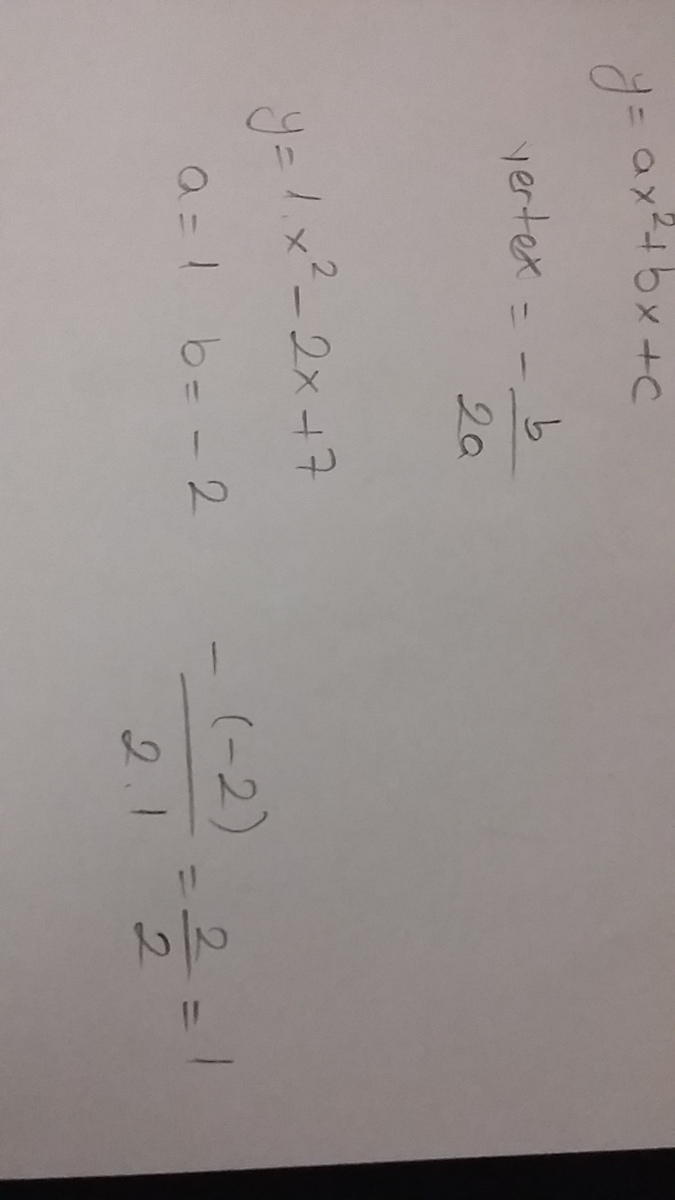 y = ax² + bx + c
vertex = - b/2a
y = 1.x² - 2x + 7
a = 1 b = - 2
- (-2)/2.1 = 2/2 = 1